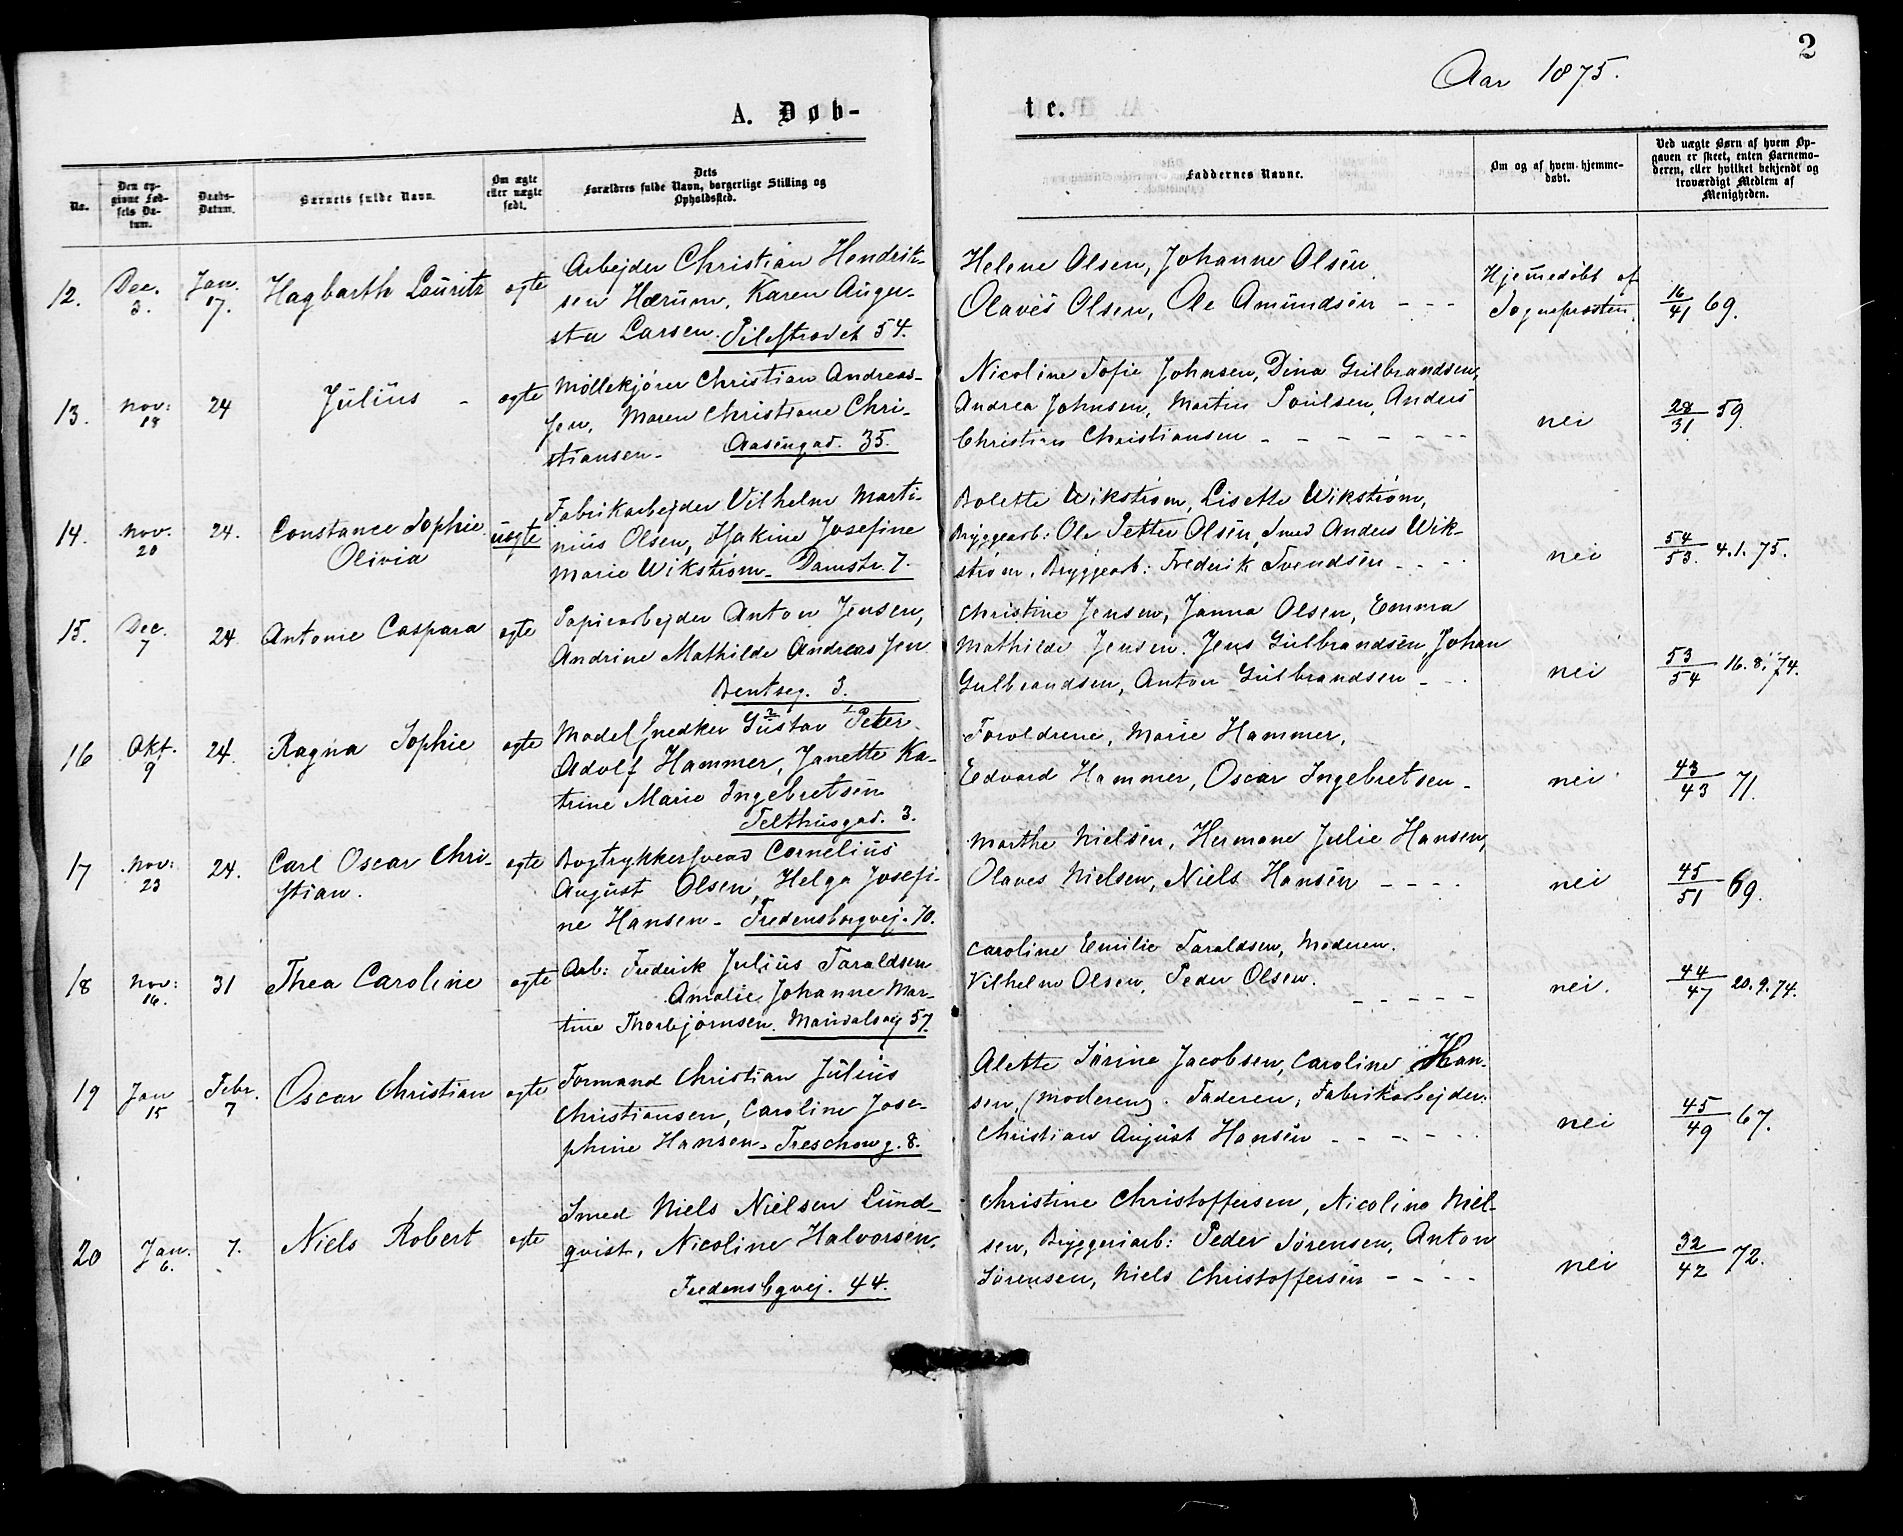 2
Aar 1875.
A. Døb-
te.
No.
Den op-
givne Fød-
sels Da-
tum.
Daabs-
Datum.
Barnets fulde Navn.
Om ægte
eller uægte
født.
Dets
Forældres fulde Navn, borgerlige Stilling og
Opholdssted.
Faddernes Navne.
Om og af hvem hjemme-
døbt.
Ved uægte Børn af hvem Op-
gaven er skeet, enten Barnemo-
deren, eller hvilket bekjendt og
troværdigt Medlem af
Menigheden.
12. Dec. 3. Jan. 17. Hagbarth Lauritz ægte
Arbejder Christian Hendrik-
sen Hærum, Karen Augu-
sta Larsen. Pilestrædet 54.
Helene Olsen, Johanne Olsen
Olaves Olsen, Ole Amundsen - - -
Hjemmedøbt af
Sognepræsten.
16/41 69.
13. Nov: 18 24 Julius - ægte
Møllekjører Christian Andreas-
sen, Maren Christiane Chri-
stiansen - Aasengad. 35.
Nicoline Sofie Johnsen, Dina Gulbrandsen,
Andrea Johnsen, Martin Poulsen, Anders
Christian Christiansen - - - - - - -
nei
28/31 59.
14. Nov: 20 24. Constance Sophie
Olivia
uægte
Fabrikarbejder Vilhelm Marti-
nius Olsen, Hakine Josefine
Marie Wikstrøm - Damstr. 7.
Bolette Wikstrøm, Lisette Wikstrøm,
Bryggearb: Ole Petter Olsen, Smed Anders Wik-
strøm, Bryggearb: Frederik Svendsen - - - -
nei
54/53. 4.1.75.
15. Dec. 7 24. Antonie Caspara ægte
Papirarbejder Anton Jensen,
Andrine Mathilde Andreas sen
Bentseg. 3.
Christine Jensen, Janna Olsen, Emma
Mathilde Jensen. Jens Gulbrandsen, Johan
Gulbrandsen, Anton Gulbrandsen - - -
nei
53/54 16.8.74.
16 Okt. 9 24. Ragna Sophie ægte
Modelsnedker Gustav Peter
2 1
Adolf Hammer, Janette Ka-
trine Marie Ingebretsen
Telthusgad. 3.
Forældrene, Marie Hammer,
Edvard Hammer, Oscar Ingebretsen -
nei
43/43 71.
17 Nov: 23 24. Carl Oscar Chri-
stian.
ægte
Bogtrykkersvend Cornelius
August Olsen, Helga Josefi-
ne Hansen - Fredensborgvej. 70.
Marthe Nielsen, Hermane Julie Hansen,
Olaves Nielsen, Niels Hansen - - - -
nei
45/51 69.
18 Nov: 16. 31 Thea Caroline ægte
Arb: Frederik Julius Taraldsen
Amalie Johanne Mar-
tine Thorbjørnsen. Maridalsvej 57.
Caroline Emilie Taraldsen, Moderen.
Vilhelm Olsen, Peder Olsen. - - - - -
nei.
44/47 20.9.74.
19 Jan 15 Febr. 7 Oscar Christian ægte
Formand Christian Julius
Christiansen, Caroline Jose-
phine Hansen - Treschowg. 8.
Alette Sørine Jacobsen, Caroline Han-
sen, (moderen). Faderen, Fabrikarbejder:
Christian August Hansen - - - - - -
nei
45/49 67.
20 Jan. 6. 7. Niels Robert ægte
Smed Niels Nielsen Lund-
qvist, Nicoline Halvorsen.
Fredensbgvej. 44.
Christine Christoffersen, Nicoline Niel-
sen, Bryggeriarb: Peder Sørensen, Anton
Sørensen, Niels Christoffersen - - - -
nei
32/42 72.